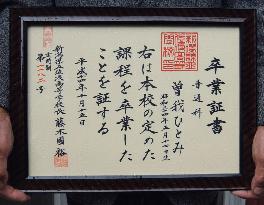 卒業証書
普通科
曽我ひとみ
昭和三十四年五月十七日生
右は本校の定めた
課程を卒業した
ことを証する
平成十四年十月十五日
新潟県立佐渡高等学校長 藤木國裕
第一一八二〇号